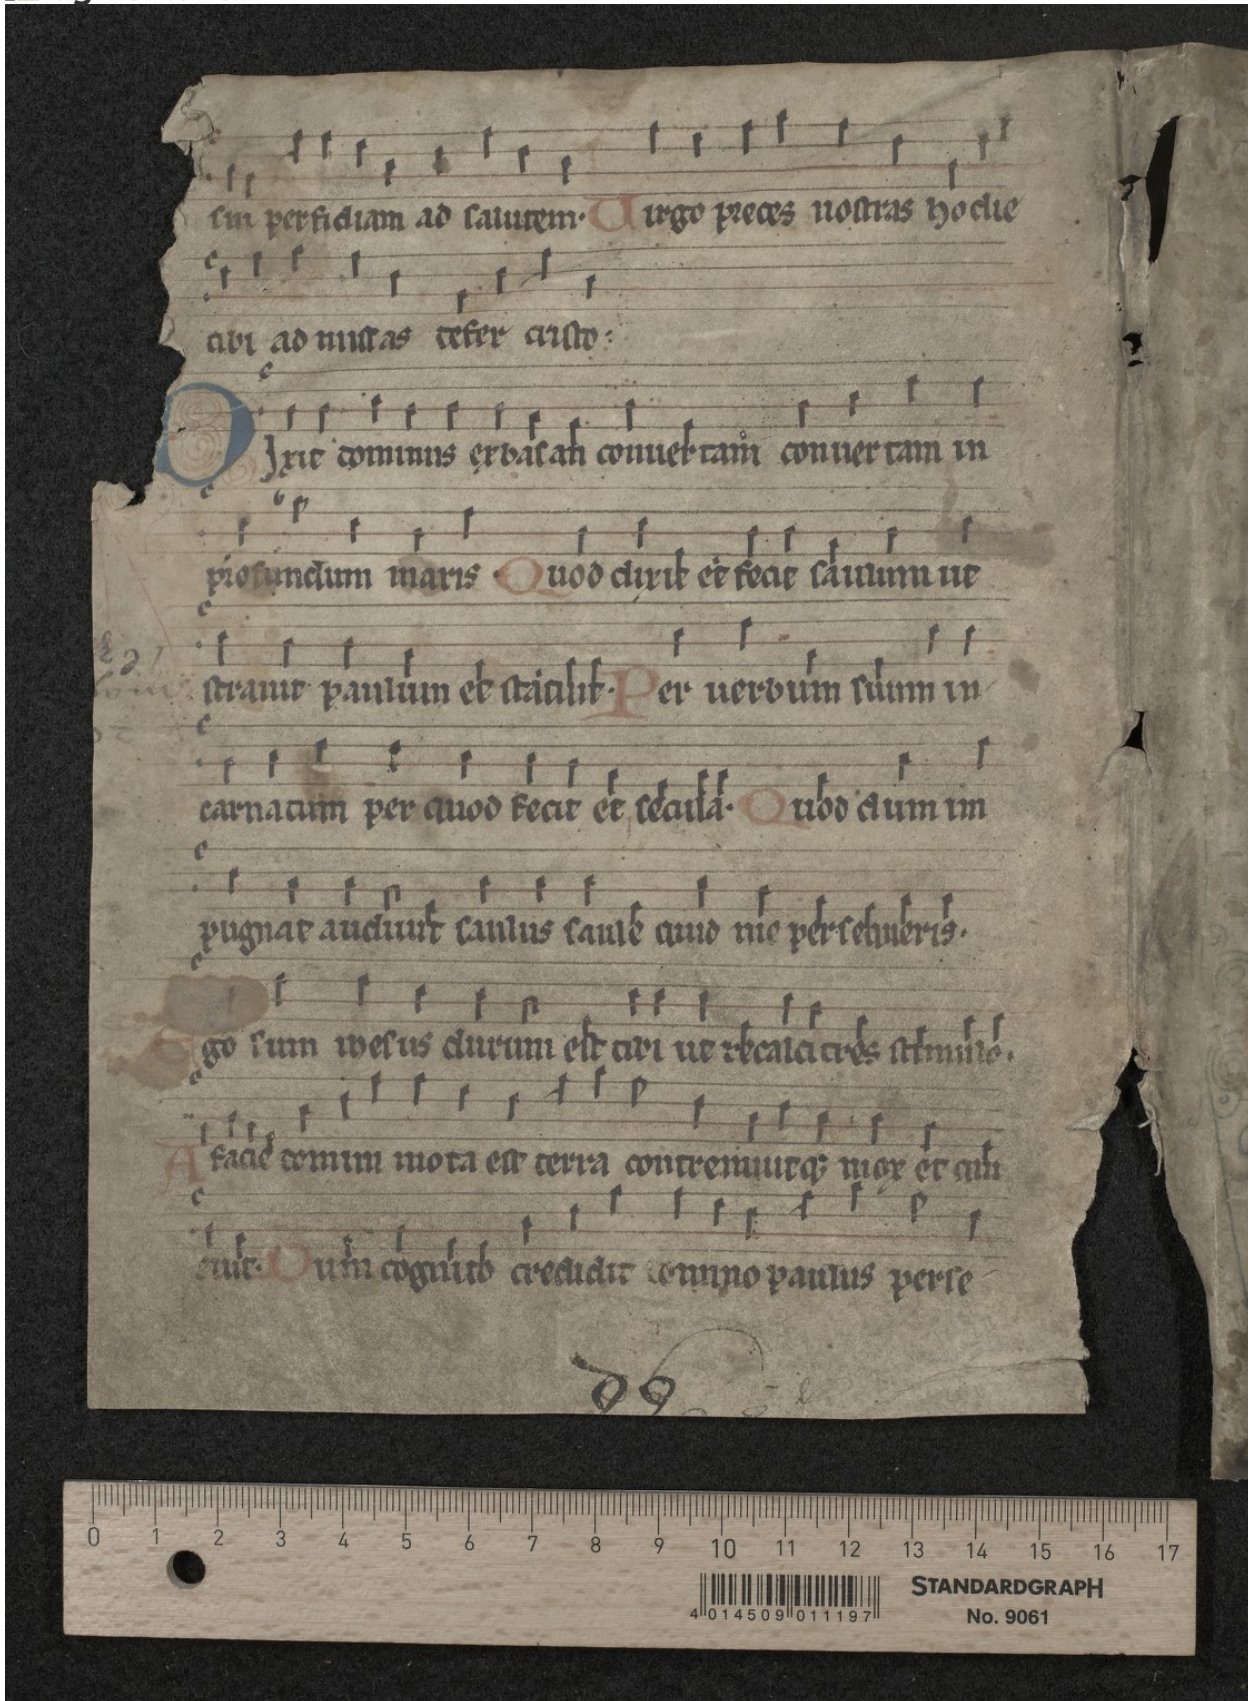 sui perfidiam ad salutem. Virgo preces nostras hodie
tibi ad missas defer cristo:
Dixit dominus ex basan convertam convertam in
profundum maris. Quod dixit et fecit saulum ut
stravit paulum et stabilit. Per verbum suum in
carnatum per quod fecit et secula. Quod dum im
pugnat audivit saulus saule quid me persequeris.
Ego sum iesus durum est tibi ut recalcitres stimulo.
A facie domini mota est terra contremuitq; mox et qui
evit. Dum cognito credidit domino paulus perse
0 1 2 3 4 5 6 7 8 9 10 11 12 13 14 15 16 17
STANDARDGRAPH
4 014509 011197
No. 9061